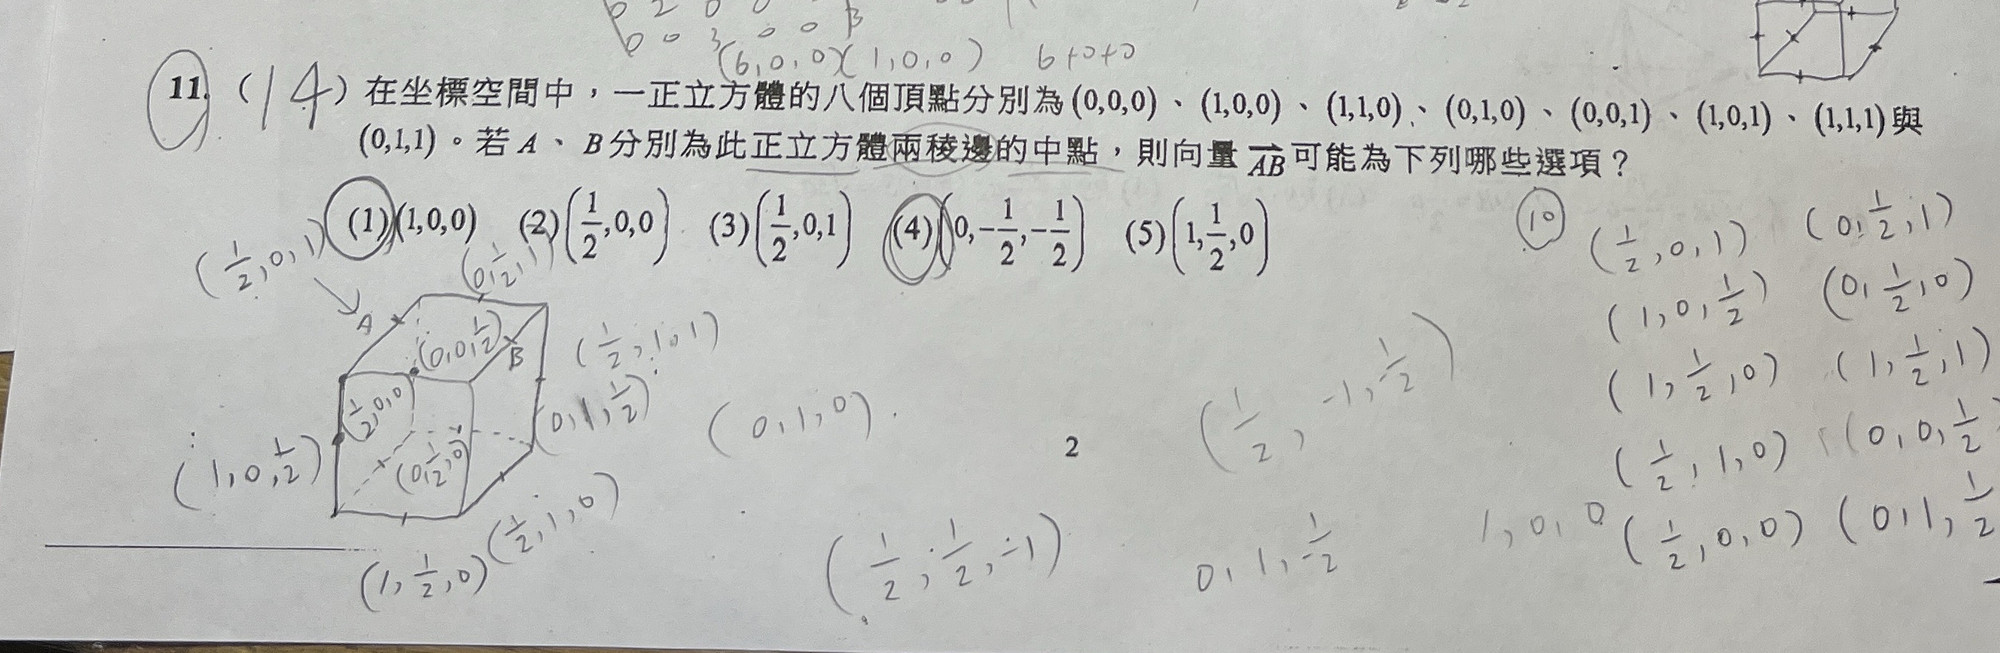 0 2 0 0
0 0 3 0 0 B
(6,0,0)(1,0,0) 6+0+0
11. (14) 在坐標空間中,一正立方體的八個頂點分別為(0,0,0)、(1,0,0)、(1,1,0)、(0,1,0)、(0,0,1)、(1,0,1)、(1,1,1)與
(0,1,1)。若 A、B分別為此正立方體兩稜邊的中點,則向量 \overrightarrow{AB} 可能為下列哪些選項?
(1)(1,0,0) (2)(1/2,0,0) (3)(1/2,0,1) (4)(0,-1/2,-1/2) (5)(1,1/2,0)
(1/2,0,1)
(0,1/2,1)
A
(0,0,1/2)
B
(1/2,1,1)
(1/2,0,0)
(0,1,1/2)
(1,0,1/2)
(0,1/2,0)
(1/2,1,0)
(1,1/2,0)
(0,1,0)
2
(1/2,-1,1/2)
(1/2,1/2,-1)
0,1,1/2
1,0,0
10
(1/2,0,1) (0,1/2,1)
(1,0,1/2) (0,1/2,0)
(1,1/2,0) (1,1/2,1)
(1/2,1,0) (0,0,1/2
(1/2,0,0) (0,1,1/2